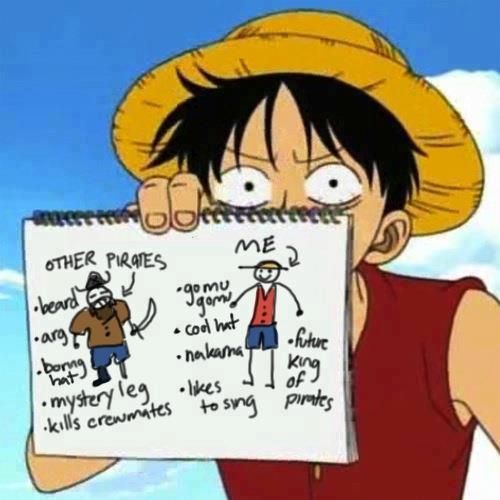 OTHER PIRATES
•beard
•arg
•boring
hat
•mystery leg
•kills crewmates
ME
•gomu
gomu
•cool hat
•nakama
•likes
to sing
•future
King
of
pirates